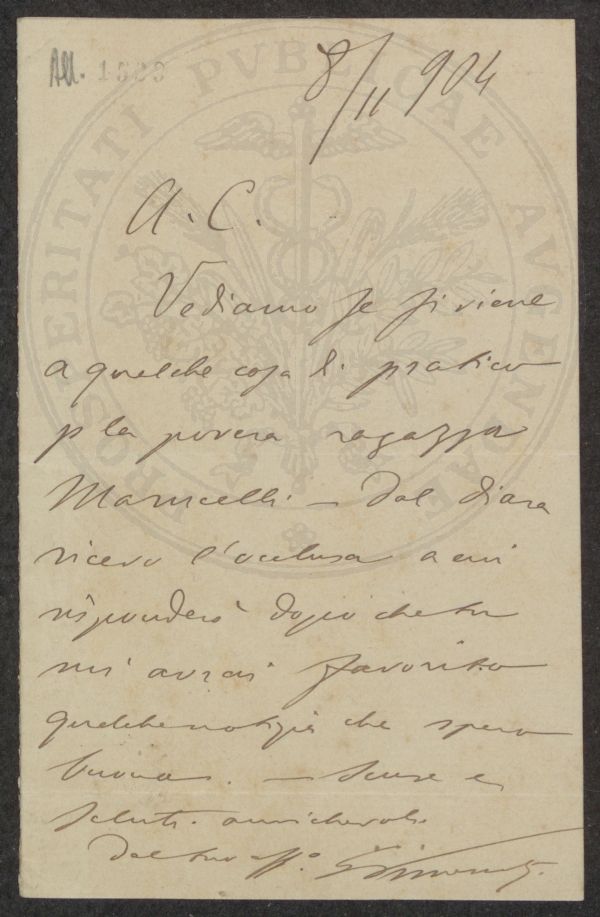 All. 1533
PROSPERITATI PVBLICAE AVGENDAE
8/11 904
A. C.
Vediamo se si viene
a qualche cosa di pratico
p la povera ragazza
Marucelli — Dal Diara
ricevo l'acclusa a cui
risponderò dopo che tu
mi avrai favorito
qualche notizia che spero
buona. — Scuse e
saluti amichevoli
Dal tuo aff.o